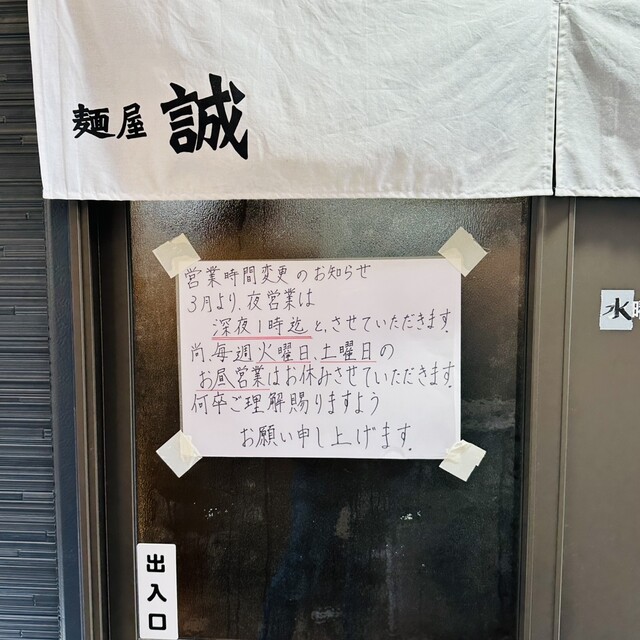 麺屋 誠
営業時間変更のお知らせ
3月より、夜営業は
深夜1時迄と、させていただきます
尚、毎週火曜日、土曜日の
お昼営業はお休みさせていただきます。
何卒ご理解賜りますよう
お願い申し上げます。
水
出入口